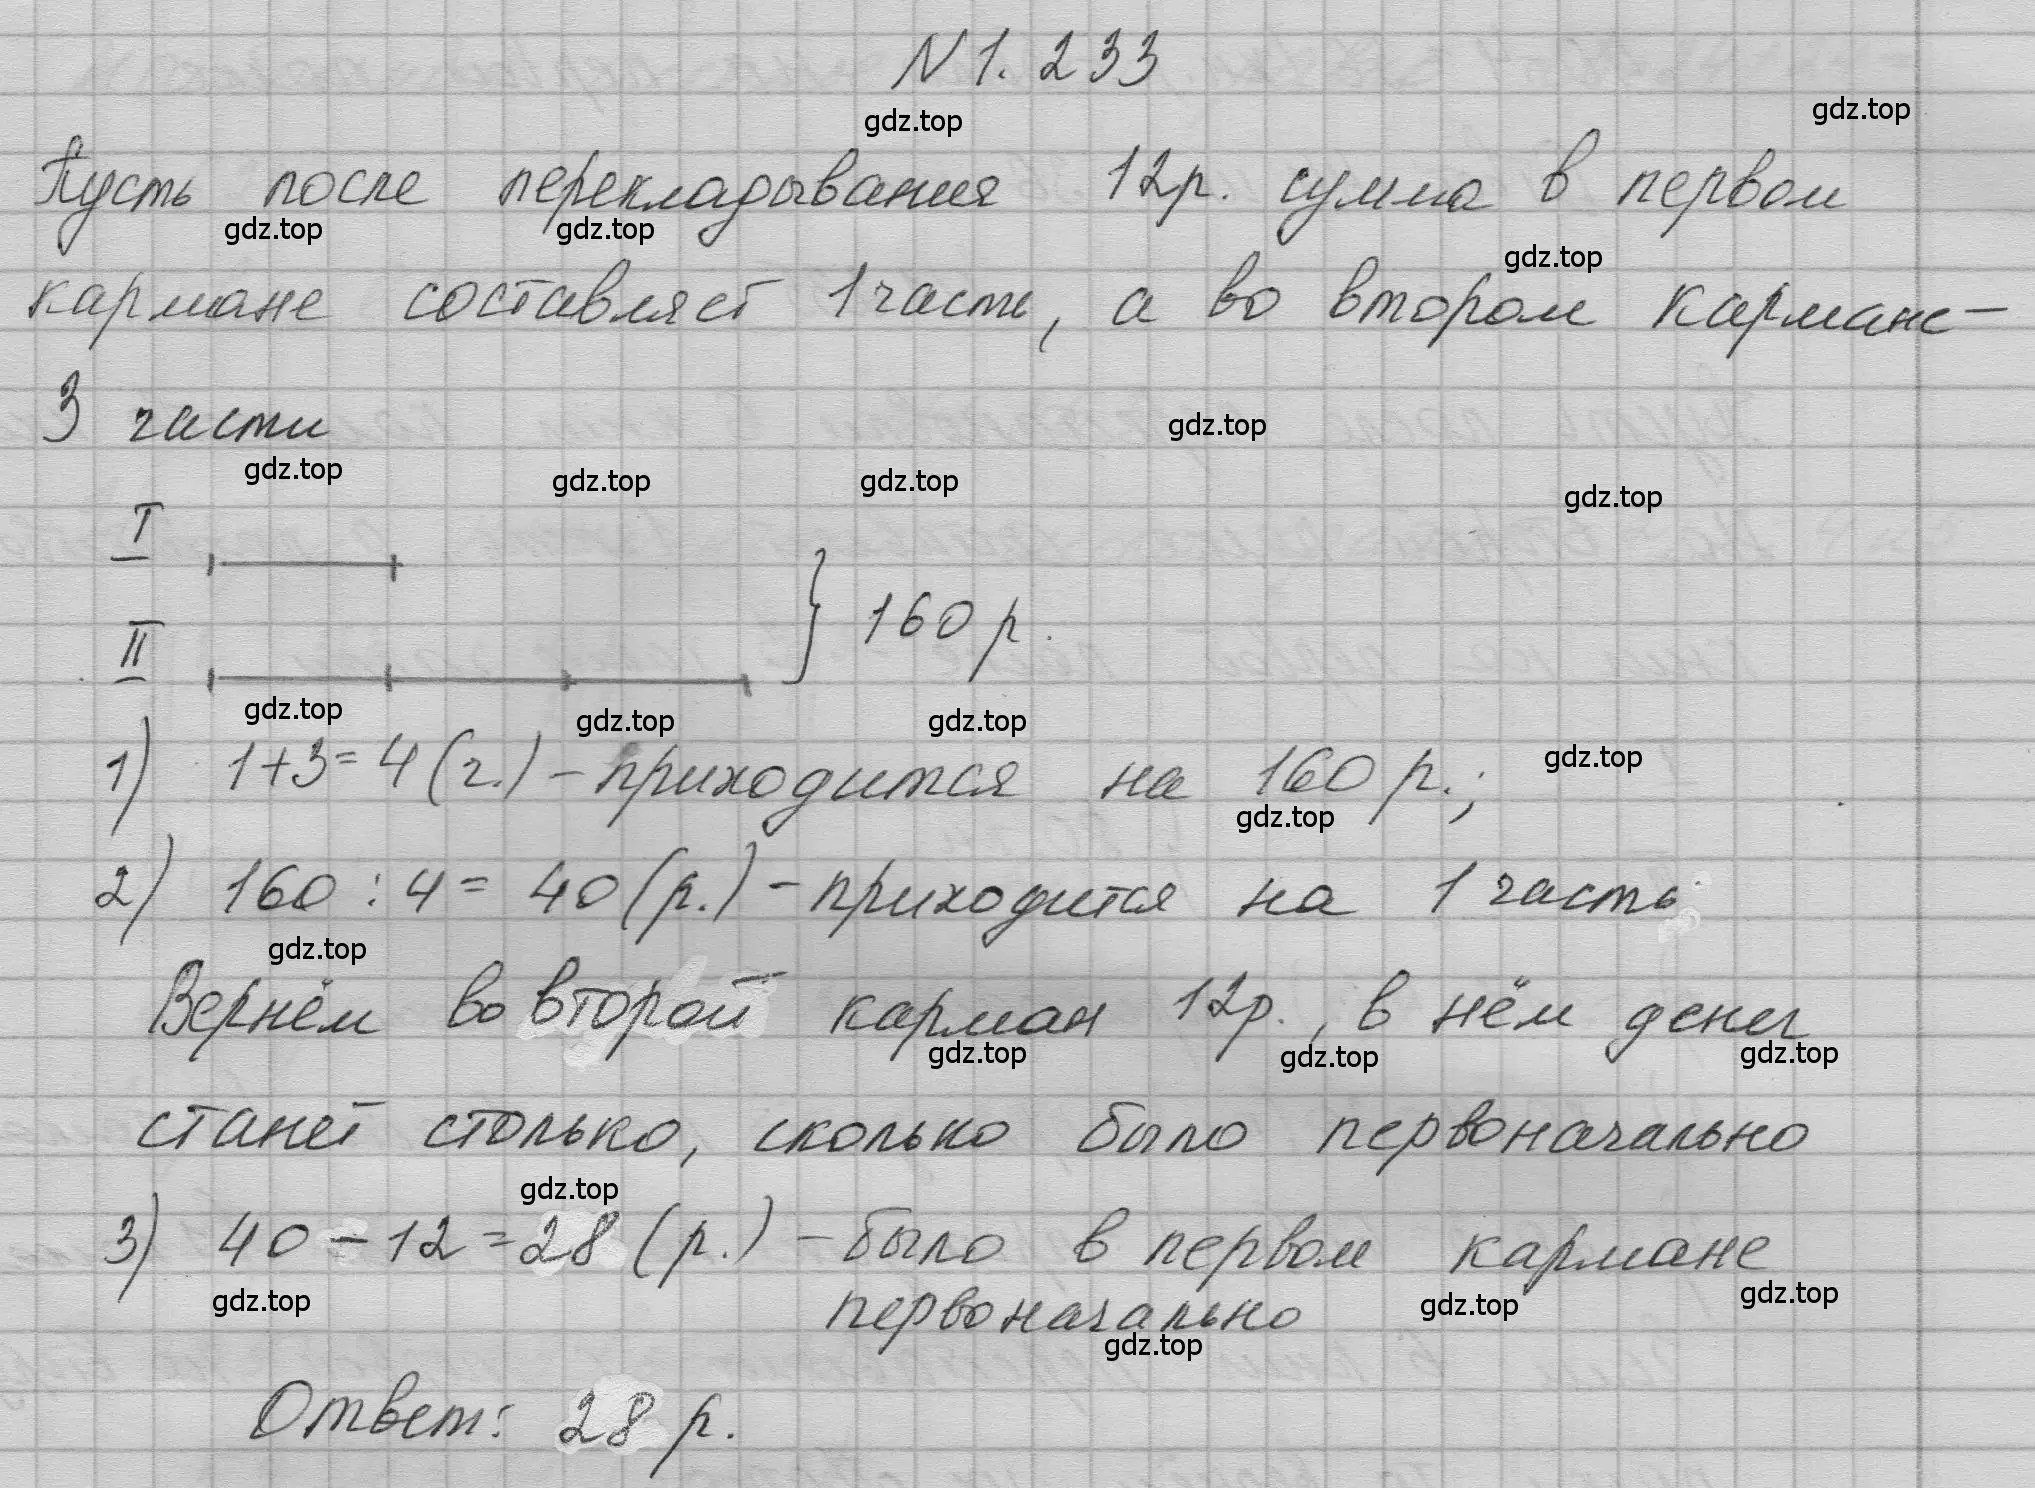 N 1.233
gdz.top
gdz.top
Пусть после перекладывания 12р. сумма в первом
gdz.top gdz.top
gdz.top
кармане составляет 1 часть, а во втором кармане –
3 части
gdz.top
gdz.top gdz.top gdz.top
gdz.top
I
} 160 р.
II
gdz.top gdz.top gdz.top
1) 1+3=4(ч.) – приходится на 160 р.;
gdz.top
gdz.top
2) 160 : 4 = 40 (р.) – приходится на 1 часть
gdz.top
Вернём во второй карман 12р., в нём денег
gdz.top gdz.top gdz.top
станет столько, сколько было первоначально
gdz.top
3) 40 – 12 = 28 (р.) – было в первом кармане
gdz.top gdz.top gdz.top
первоначально
gdz.top
Ответ: 28 р.